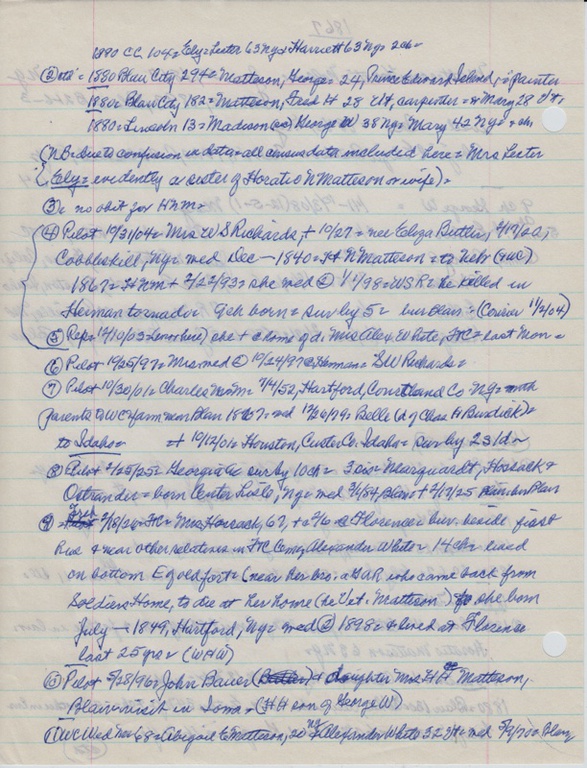 1880 CC 104 = Ely = Lester 63 Ny + Harriett 63 Ny = 2 ch =
1880 Blair City 294 = Matteson, George = 24, Prince Edward Island, = painter
1880 = Blair City 182 = Matteson, Fred H 28 Vt, carpenter = + Mary 28 Vt,
1880 = Lincoln 13 = Madison George W 38 Ny = Mary 42 Ny =
(NB = due to confusion in data = all census data included here = Mrs Lester
Ely = evidently a sister of Horatio N Matteson or wife) =
③ = no obit for HNM =
④ Pilot 10/31/04 = Mrs W S Richards, + 10/27 = nee Eliza Butler,
Cobbleskill, Ny = med Dec 1840 = H N Matteson = to Nebr (WC)
1867 = HNM + 2/22/93 = she med ② 1/1/98 = WSR = he killed in
Herman tornado = 9 ch born = sur by 5 = bur Blair = (Courier 11/2/04)
⑤ Rep = 12/10/03 = she + home of d. Mrs Alex. White, FC = last Mon =
⑥ Pilot 10/25/97 = Mrs med ② 10/24/97 @ Herman = SW Richards =
⑦ Pilot 10/30/01 = Charles M = 7/4/52, Hartford, Courtland Co Ny = with
parents to WC farm near Blair 1867 = med 12/26/79 = Belle (d of Chas H Burdick) =
to Idaho = + 10/12/01 = Houston, Custer Co. Idaho = sur by 2s 1d
⑧ Pilot 2/25/25 = George sur by 10 ch = 3 Marquardt, Hossack +
Ostrander = born Center Lisle, Ny = med Blair + 2/17/25 Blair
2/18/26 = FC = Mrs Hossack, 67, + 2/6 @ Florence = bur. beside first
hus & near other relatives in FC Cemy, Alexander White = 14 ch = lived
on bottom E of old fort = (near her bro. a GAR who came back from
Soldiers Home, to die at her home (he Vet. Matteson) she born
July 1849, Hartford, Ny = med ② 1898 = + lived at Florence
last 25 yrs = (WHW)
⑩ Pilot 5/28/96 = John Bauer + daughter Mrs HH Matteson,
Blair = visit in Iowa = (HH son of George W)
⑪ WC Wed = Abigail E Matteson, 20 Ny + Alexander White 32 = med Blair